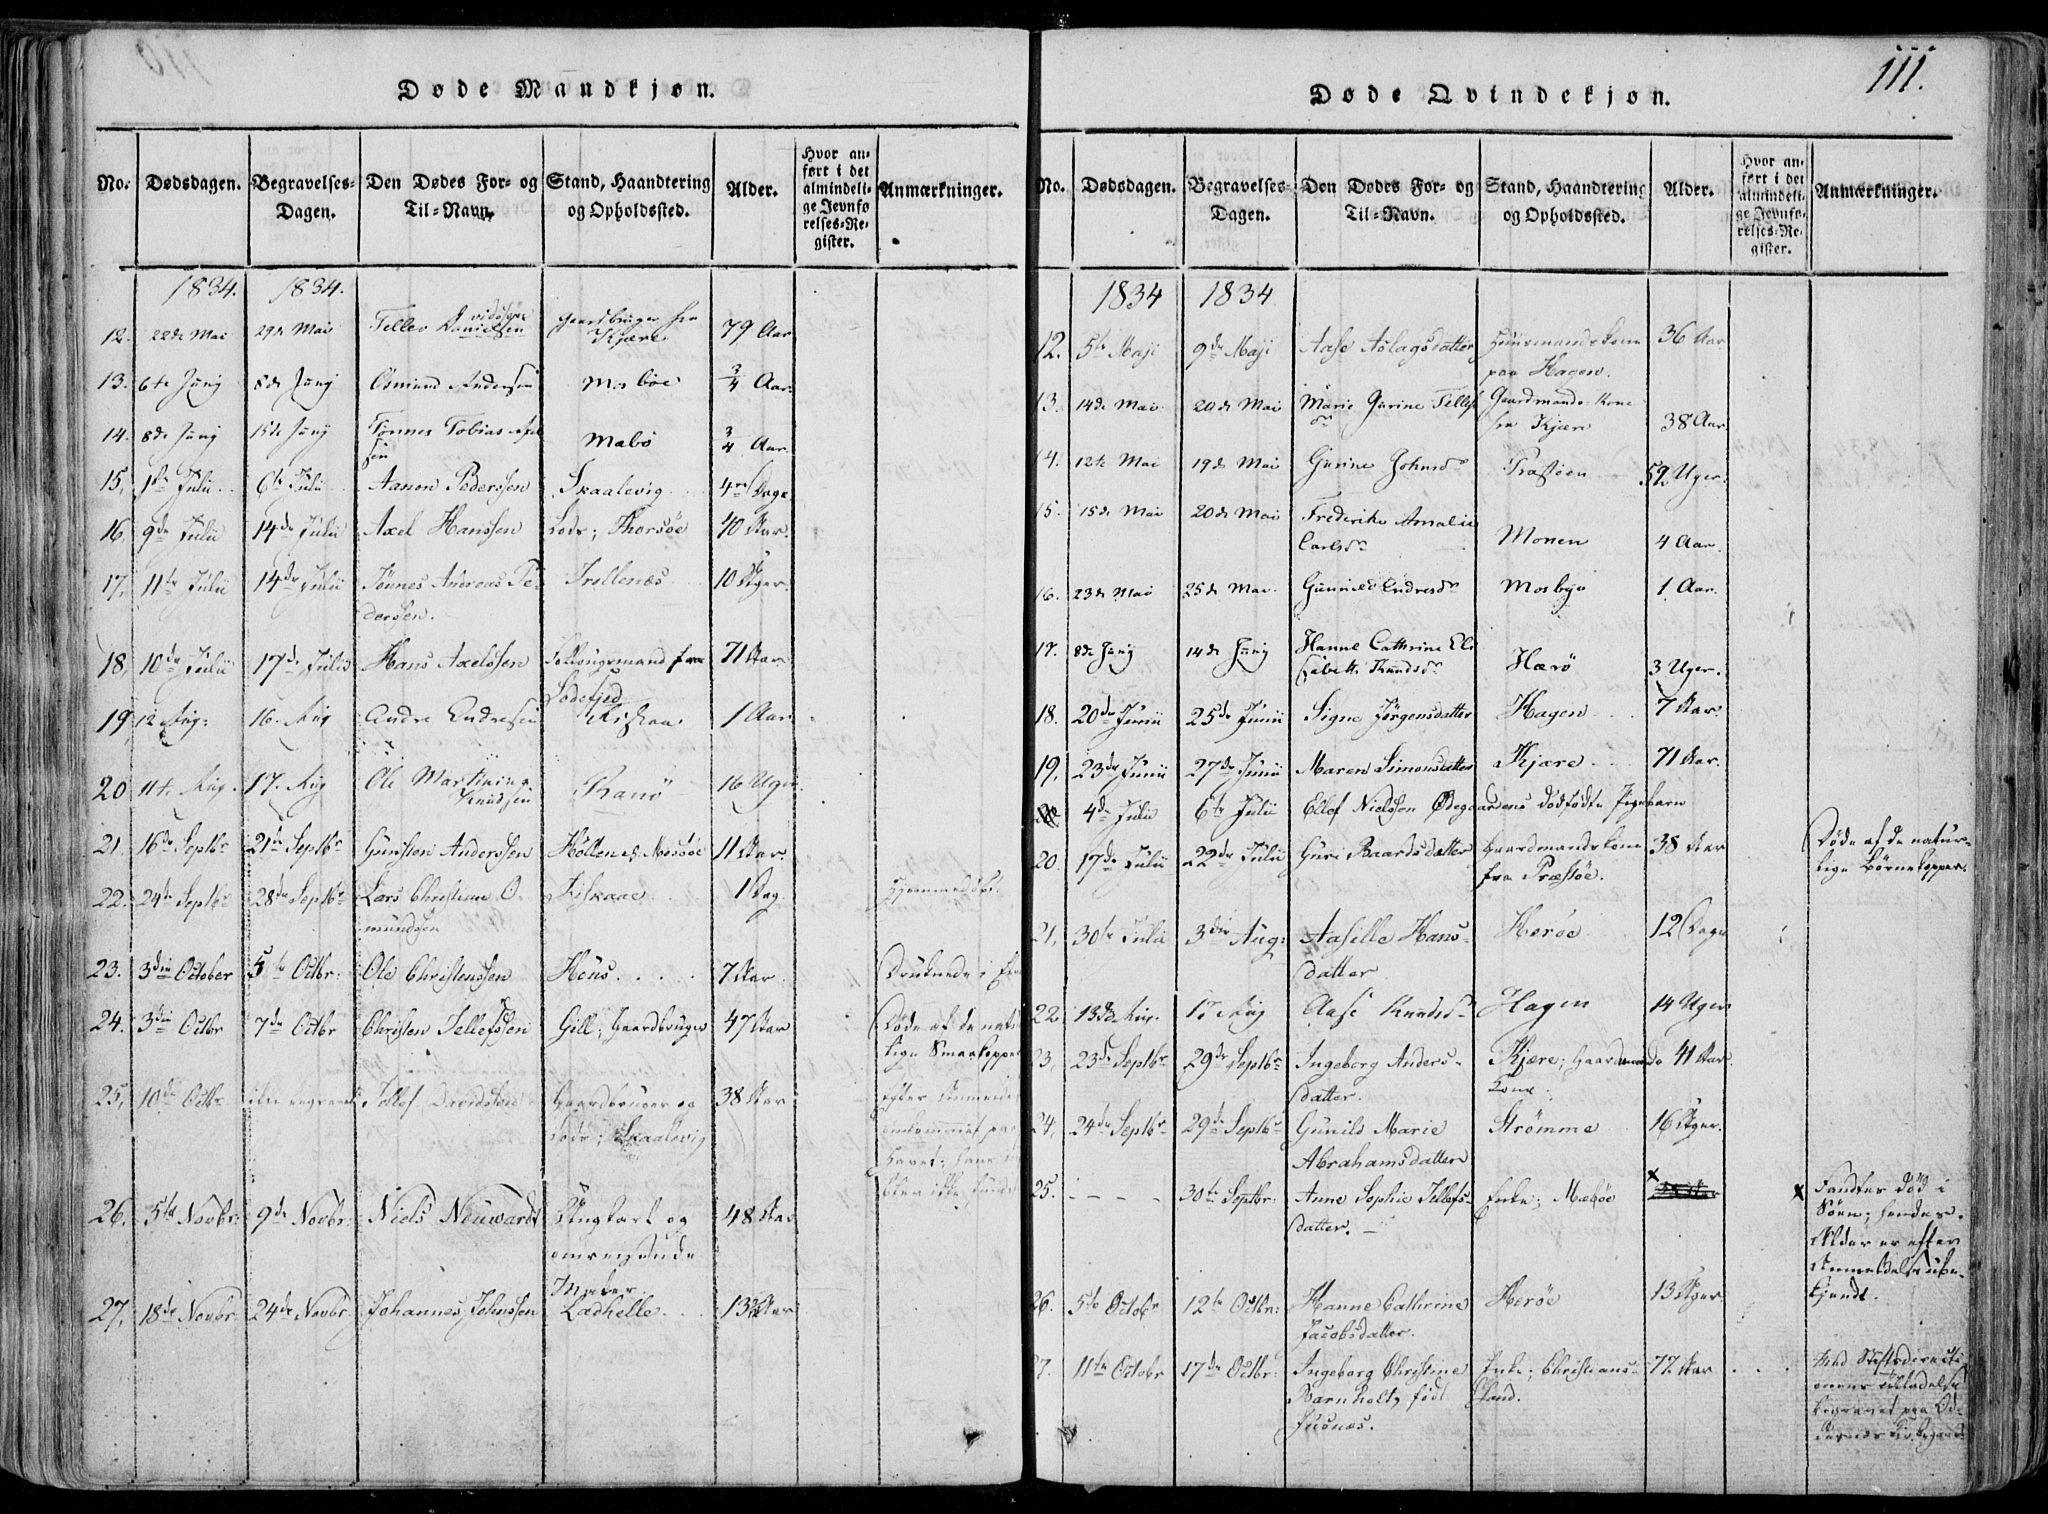 Døde Mandkjøn.
No. Dødsdagen. Begravelses-Dagen. Den Dødes For- og Til-Navn. Stand, Haandtering og Opholdssted. Alder. Hvor anført i det almindelige Jevnførelses-Register. Anmærkninger.
1834. 1834.
12. 22de Mai 29de Mai Tellev Danielsen Gaardbruger fra Kjære 79 Aar
13. 6te Junij 8de Junij Osmund Andersen Mosbøe 3/4 Aar
14. 8de Junij 15de Junij Tønnes Tobias Axelsen Mabø 3/4 Aar
15. 1ste Julii 6te Julii Aanon Pedersen Skaalevig 4re Dage
16. 9de Julii 14de Julii Axel Hanssen Lods; Thorsøe 40 Aar
17. 11te Julii 14de Julii Tønnes Andreas Pedersen. Trollenæs 10 Uger
18. 10de Julii 17de Julii Hans Axelssen Follougsmand fra Lodefjed 71 Aar
19. 12 Aug: 16. Aug Andre Endresen Kiskaa 1 Aar
20 11te Aug. 17. Aug Ole Martinius Knudsen Ranø 16 Uger
21. 16de Septbr 21de Septbr Gunsten Anderssen Holten ell. Mosbøe 11 Aar
22. 24de Septbr 28de Septbr Lars Christian Omundsen Fiskaae 1 Dag Hjemmedøbt
23. 3die October 5te Octbr: Ole Christenssen Høus 7 Aar Druknede i
24. 3die Octbr 7de Octbr Christen Tellefssen Gill; Gaardbruger 47 Aar Døde af de naturlige Smaakopper
25. 10de Octbr ikke begravet Tellef Davidssen Gaardbruger og Lods; Skaalevig 38 Aar efter Anmeldelse omkommet paa Havet; hans blev ikke funde
26. 5te Novbr: 9de Novbr. Niels Neuwardt Ungkarl og omreisende Maler 48 Aar
27. 18de Novbr. 24de Novbr Johannes Johnssen Ladhelle 13 Aar
111.
Døde Qvindekjøn.
No. Dødsdagen. Begravelses-Dagen. Den Dødes For- og Til-Navn. Stand, Haandtering og Opholdssted. Alder. Hvor anført i det almindelige Jevnførelses-Register. Anmærkninger.
1834 1834
12. 5te Maji 9de Maji Aase Aslagsdatter Huusmandskone paa Hagen. 36 Aar
13. 14de Mai 20de Mai Marie Gurine Tellefsdr Gaardmands Kone fra Kjære 38 Aar
14. 12te Mai 19de Mai Gurine Johnsdr Træstøen 59 Uger
15. 15de Mai 20de Mai Frederikke Amalie Carlsdr Monen 4 Aar
16. 23de Mai 25de Mai Gunnild Endresdr Mosbye 1 Aar
17. 8de Junij 14de Junij Hanne Cathrine Elisabeth Knudsdr Hærø 3 Uger
18. 20de Junii 25de Junii Signe Jørgensdatter Hagen 7 Aar
19. 23de Junii 27de Junii Maren Simonsdatter Kjære 71 Aar
4de Julii 6te Julii Ellef Nielssen Ødegaardens dødfødte Pigebarn
20. 17de Julii 22de Julii Guri Baardsdatter Gaardmandskone fra Præstøe. 38 Aar Døde af de naturlige Børnekopper.
21. 30te Julii 3die Aug: Aasille Hansdatter Herøe 12 Dage
22. 13de Aug. 17 Aug Aase Knudsdr Hagen 14 Uger
23. 23de Septbr 29de Septbr Ingeborg Andersdatter. Kjære; Gaardmands Kone 41 Aar
24. 24de Septbr 29de Septbr Gunild Marie Abrahamsdatter Strømme 16 Uger
25. - - - - 30te Septbr: Anne Sophie Tellefsdatter. Enke; Mæbøe × × Fandtes død i Søen; hendes Alder er efter Anmeldelse ubekjendt.
26. 5te Octobr 12te Octbr: Hanne Cathrine Jacobsdatter. Herøe 13 Uger
27. 11te Octobr 17de Octbr: Ingeborg Christine Barnholt, født Fusnæs. Enke; Christianssand. 77 Aar Med Stiftsdirectionens Tilladelse begravet paa Oddernæs Kirkegaard